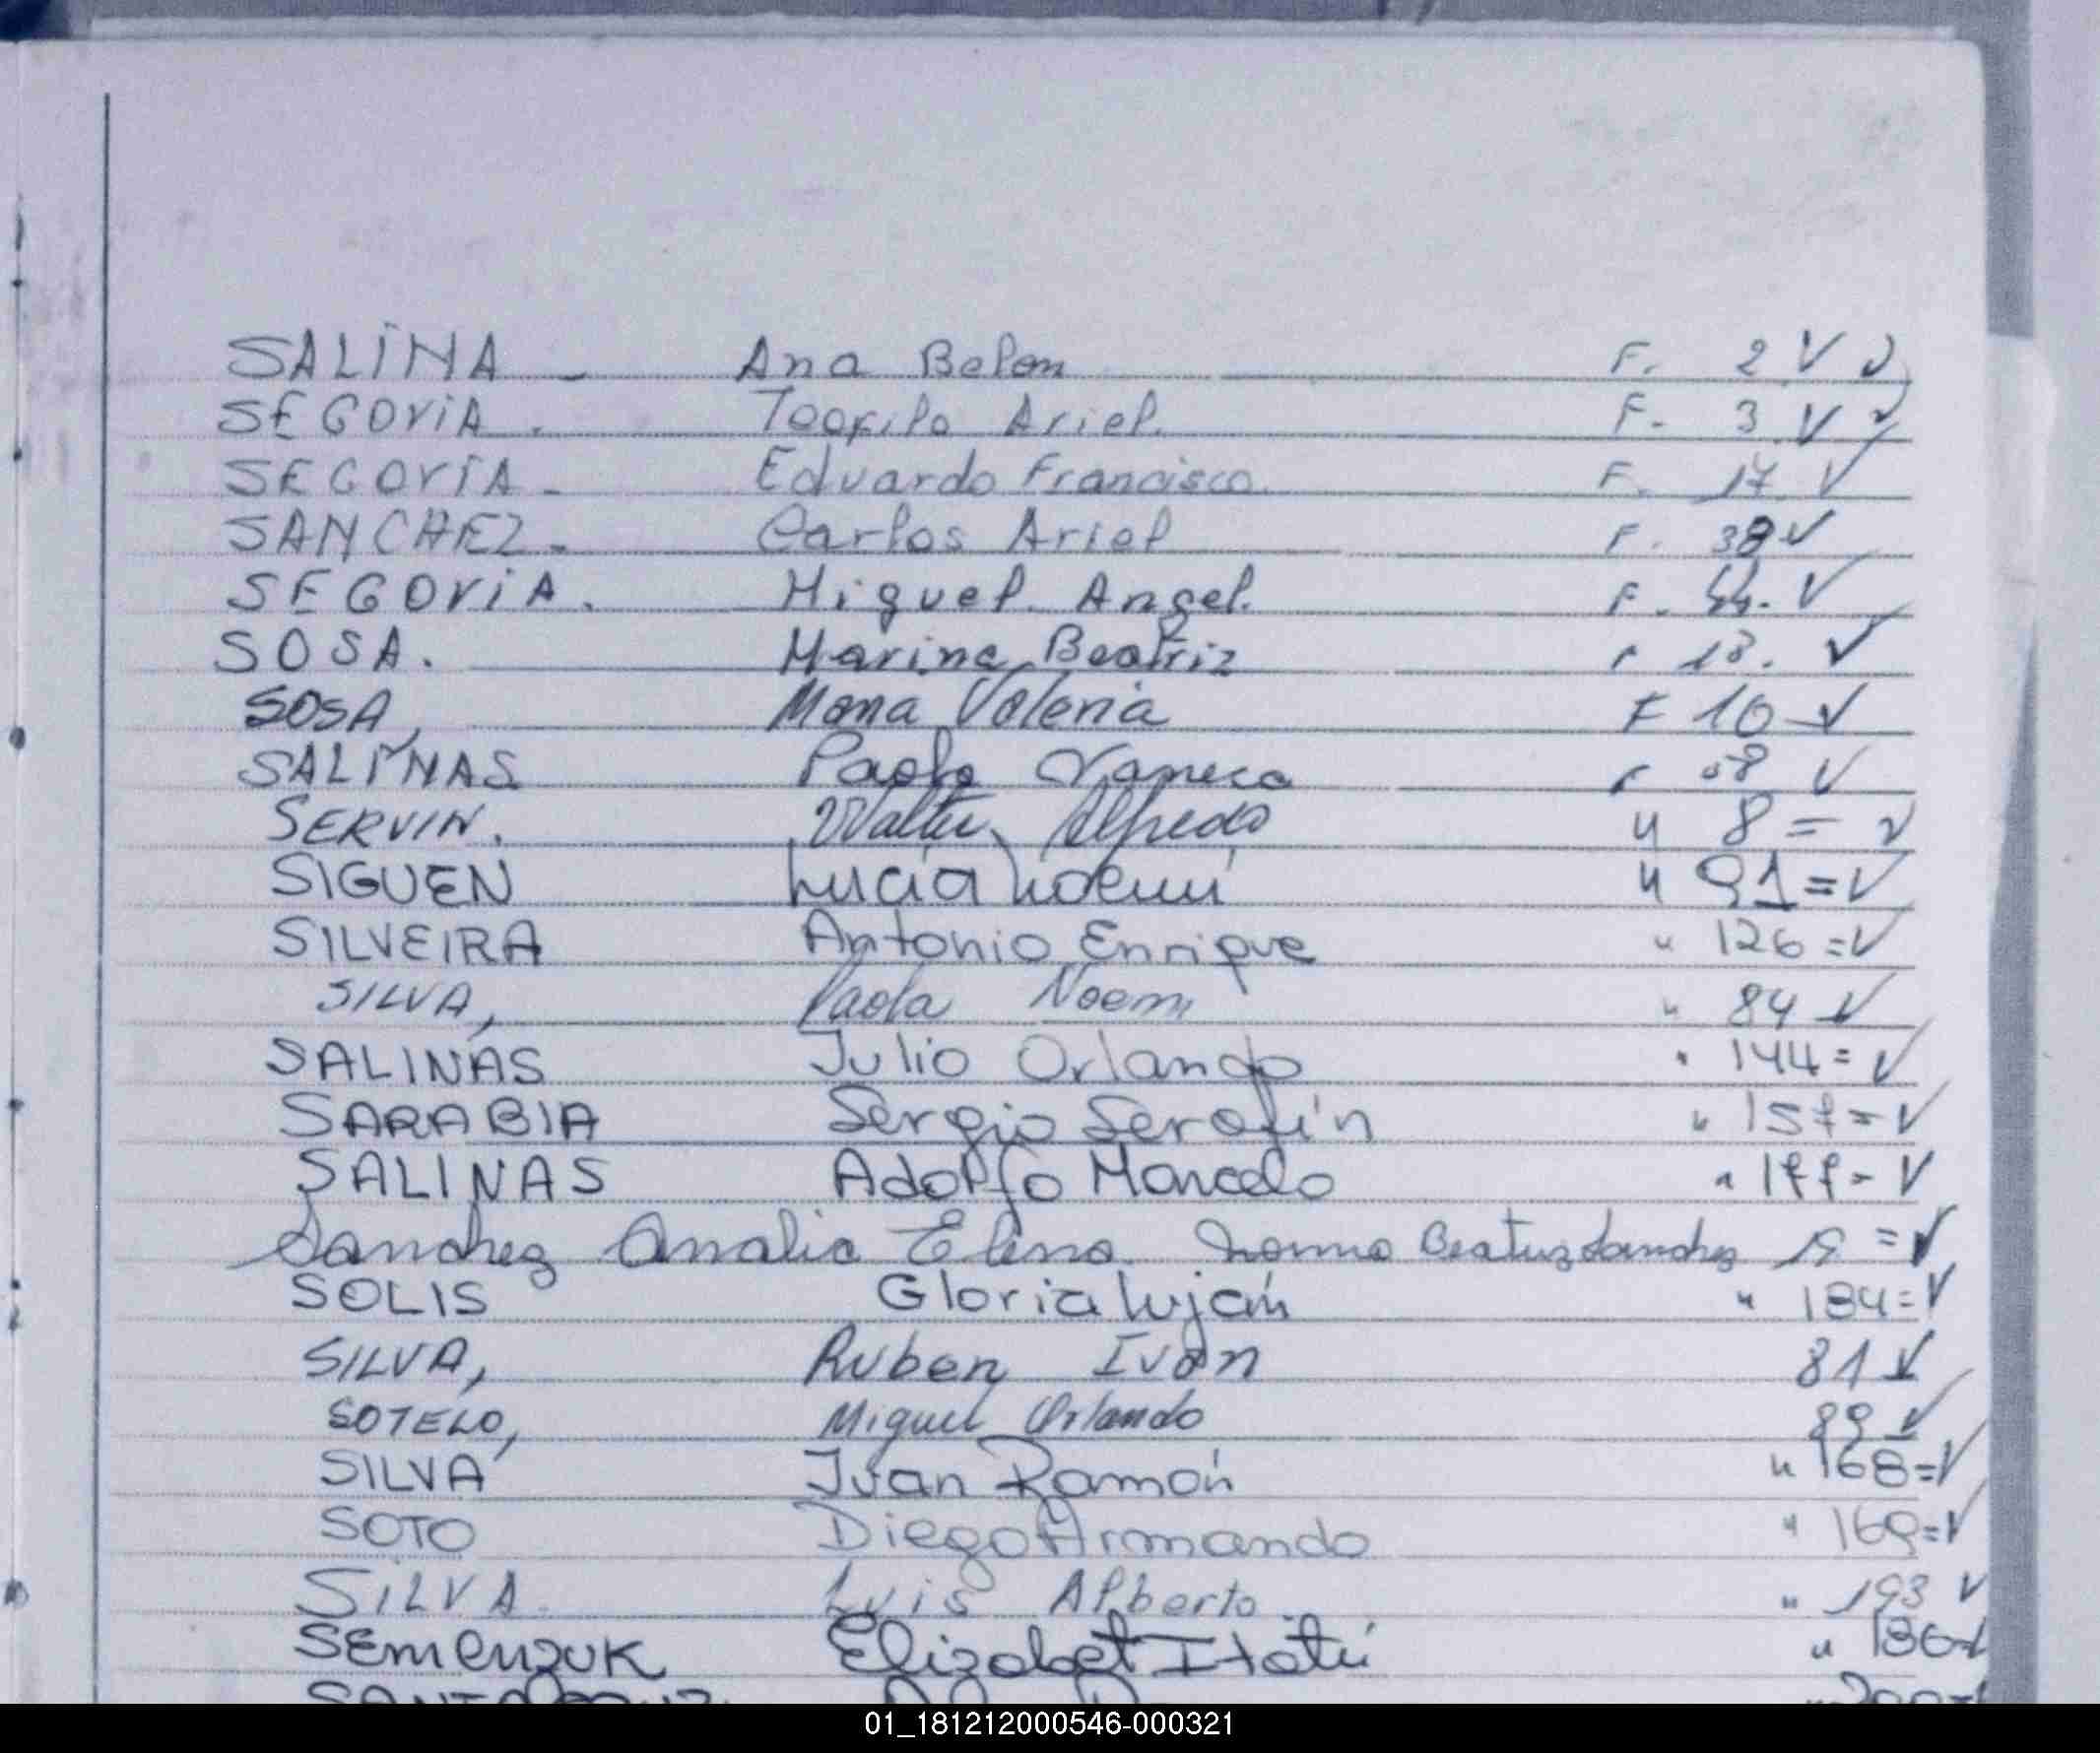 SALINA - Ana Belen F. 2 V
SEGOVIA. Teofilo Ariel. F. 3 V
SEGOVIA - Eduardo Francisco. F. 17 V
SANCHEZ - Carlos Ariel F. 38 V
SEGOVIA. Miguel Angel. F. 44. V
SOSA. Marina Beatriz 18. V
SOSA, Maria Valeria F 10 V
SALINAS Paola Vanesa 08 V
SERVIN. Walter Alfredo " 8 = V
SIGUEN Lucía Noemí " 91 = V
SILVEIRA Antonio Enrique " 126 = V
SILVA, Paola Noemi " 84 V
SALINAS Julio Orlando " 144 = V
SARABIA Sergio Serafín " 157 = V
SALINAS Adolfo Marcelo " 177 = V
Sanchez Analia Elena Norma Beatriz Sanchez = V
SOLIS Gloria Luján " 184 = V
SILVA, Ruben Ivan 81 V
SOTELO, Miguel Orlando 89 V
SILVA Ivan Ramón " 168 = V
SOTO Diego Armando " 169 = V
SILVA. Luis Alberto " 193 V
SEMENZUK Elizabet Itatí " 186
01_181212000546-000321